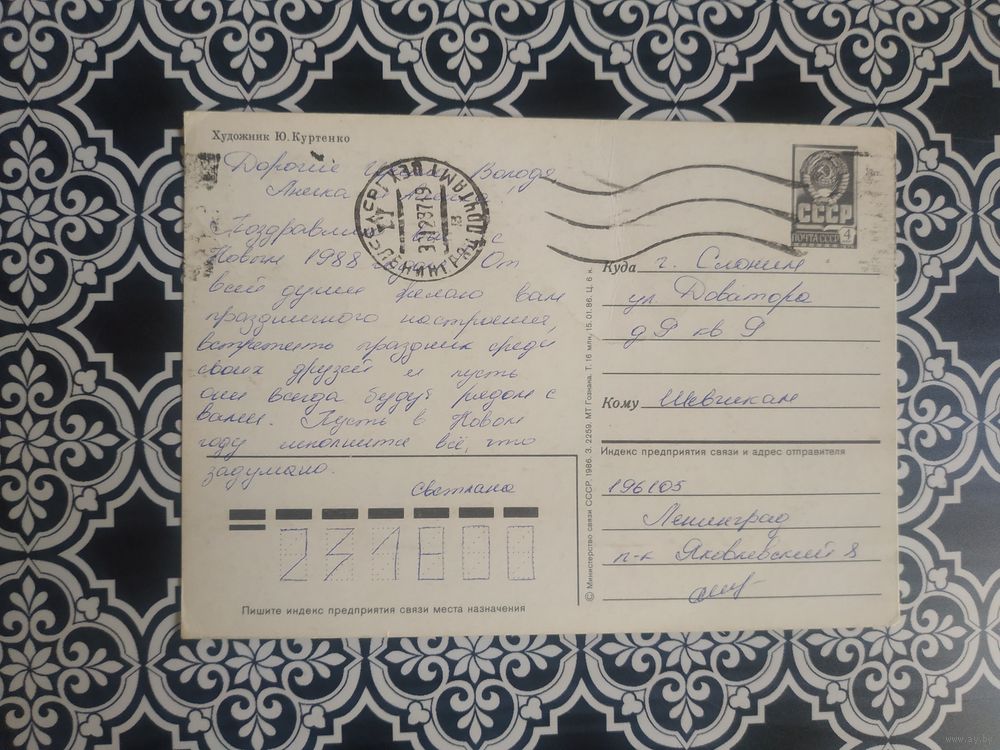 Художник Ю. Куртенко
Дорогие Володя,
Поздравляю вас с
Новым 1988 годом! От
всей души желаю вам
праздничного настроения,
встретить праздник среди
своих друзей и пусть
они всегда будут рядом с
вами. Пусть в Новом
году исполнится всё, что
задумано.
Светлана
231800
Пишите индекс предприятия связи места назначения
© Министерство связи СССР. 1986. З. 2259. МТ Гознака. Т. 16 млн. 15.01.86. Ц. 6 к.
СССР
ПОЧТА СССР 4
ЛЕНИНГРАД
Куда г. Слоним
ул Доватора
д 9 кв 9
Кому Шевчикам
Индекс предприятия связи и адрес отправителя
196105
Ленинград
п-к Яковлевский 8
www.ay.by